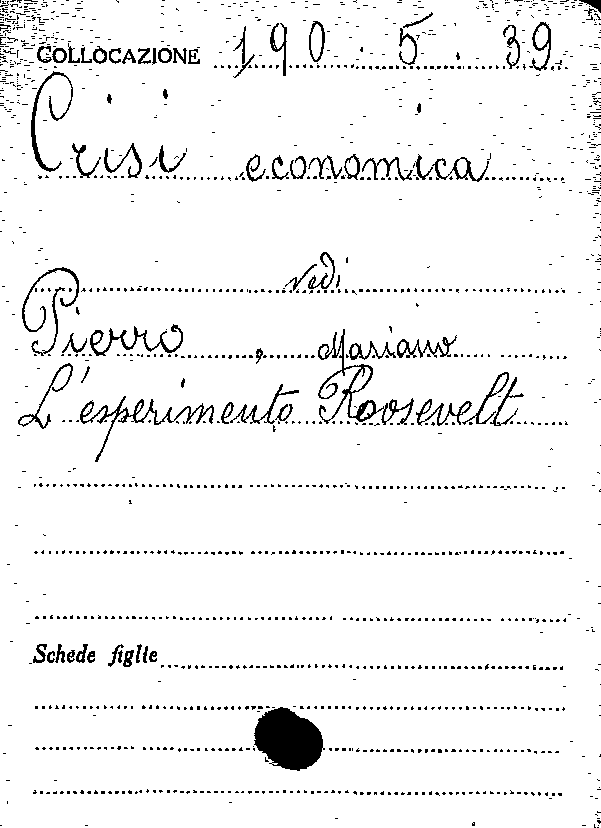 COLLOCAZIONE 190.5.39
Crisi economica
Vedi
Pierro, Mariano
L'esperimento Roosevelt
Schede figlie